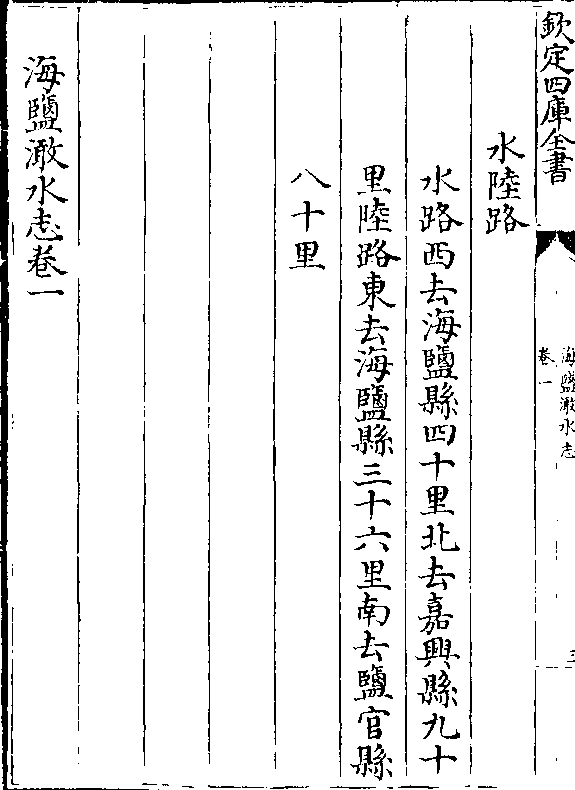 欽定四庫全書
海鹽澉水志
卷一
三
水陸路
水路西去海鹽縣四十里北去嘉興縣九十
里陸路東去海鹽縣三十六里南去鹽官縣
八十里
海鹽澉水志卷一